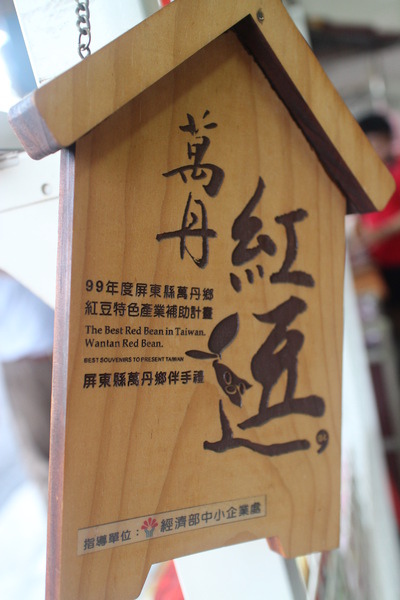 萬丹
紅豆
99年度屏東縣萬丹鄉
紅豆特色產業補助計畫
The Best Red Bean in Taiwan.
Wantan Red Bean.
BEST SOUVENIRS TO PRESENT TAIWAN
屏東縣萬丹鄉伴手禮
指導單位：經濟部中小企業處